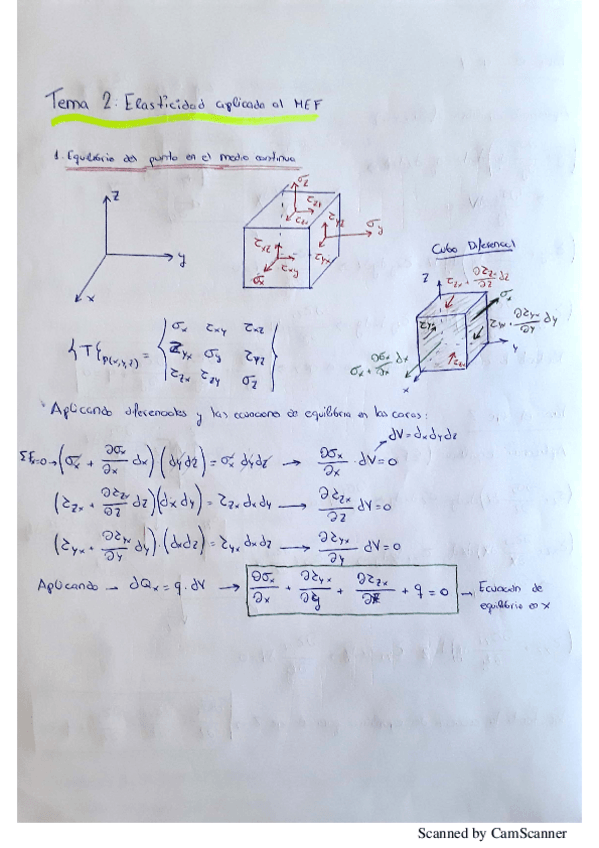 Tema 2: Elasticidad aplicada al MEF
1. Equilibrio del punto en el medio continuo
z
y
x
σz
τzy
τzx
τyz
σy
τyx
τxz
τxy
σx
Cubo Diferencial
z
τzx + ∂τzx/∂z dz
σx
τyx
τyx + ∂τyx/∂y dy
y
σx + ∂σx/∂x dx
τzx
x
{T}p(x,y,z) = { σx τxy τxz
τyx σy τyz
τzx τzy σz }
* Aplicando diferenciales y las ecuaciones de equilibrio en las caras:
dV = dx dy dz
ΣFx=0 → (σx + ∂σx/∂x dx) (dy dz) = σx dy dz → ∂σx/∂x · dV = 0
(τzx + ∂τzx/∂z dz)(dx dy) = τzx dx dy → ∂τzx/∂z dV = 0
(τyx + ∂τyx/∂y dy) · (dx dz) = τyx dx dz → ∂τyx/∂y dV = 0
Aplicando → dQx = q · dV → ∂σx/∂x + ∂τyx/∂y + ∂τzx/∂z + q = 0 → Ecuación de
equilibrio en x
Scanned by CamScanner